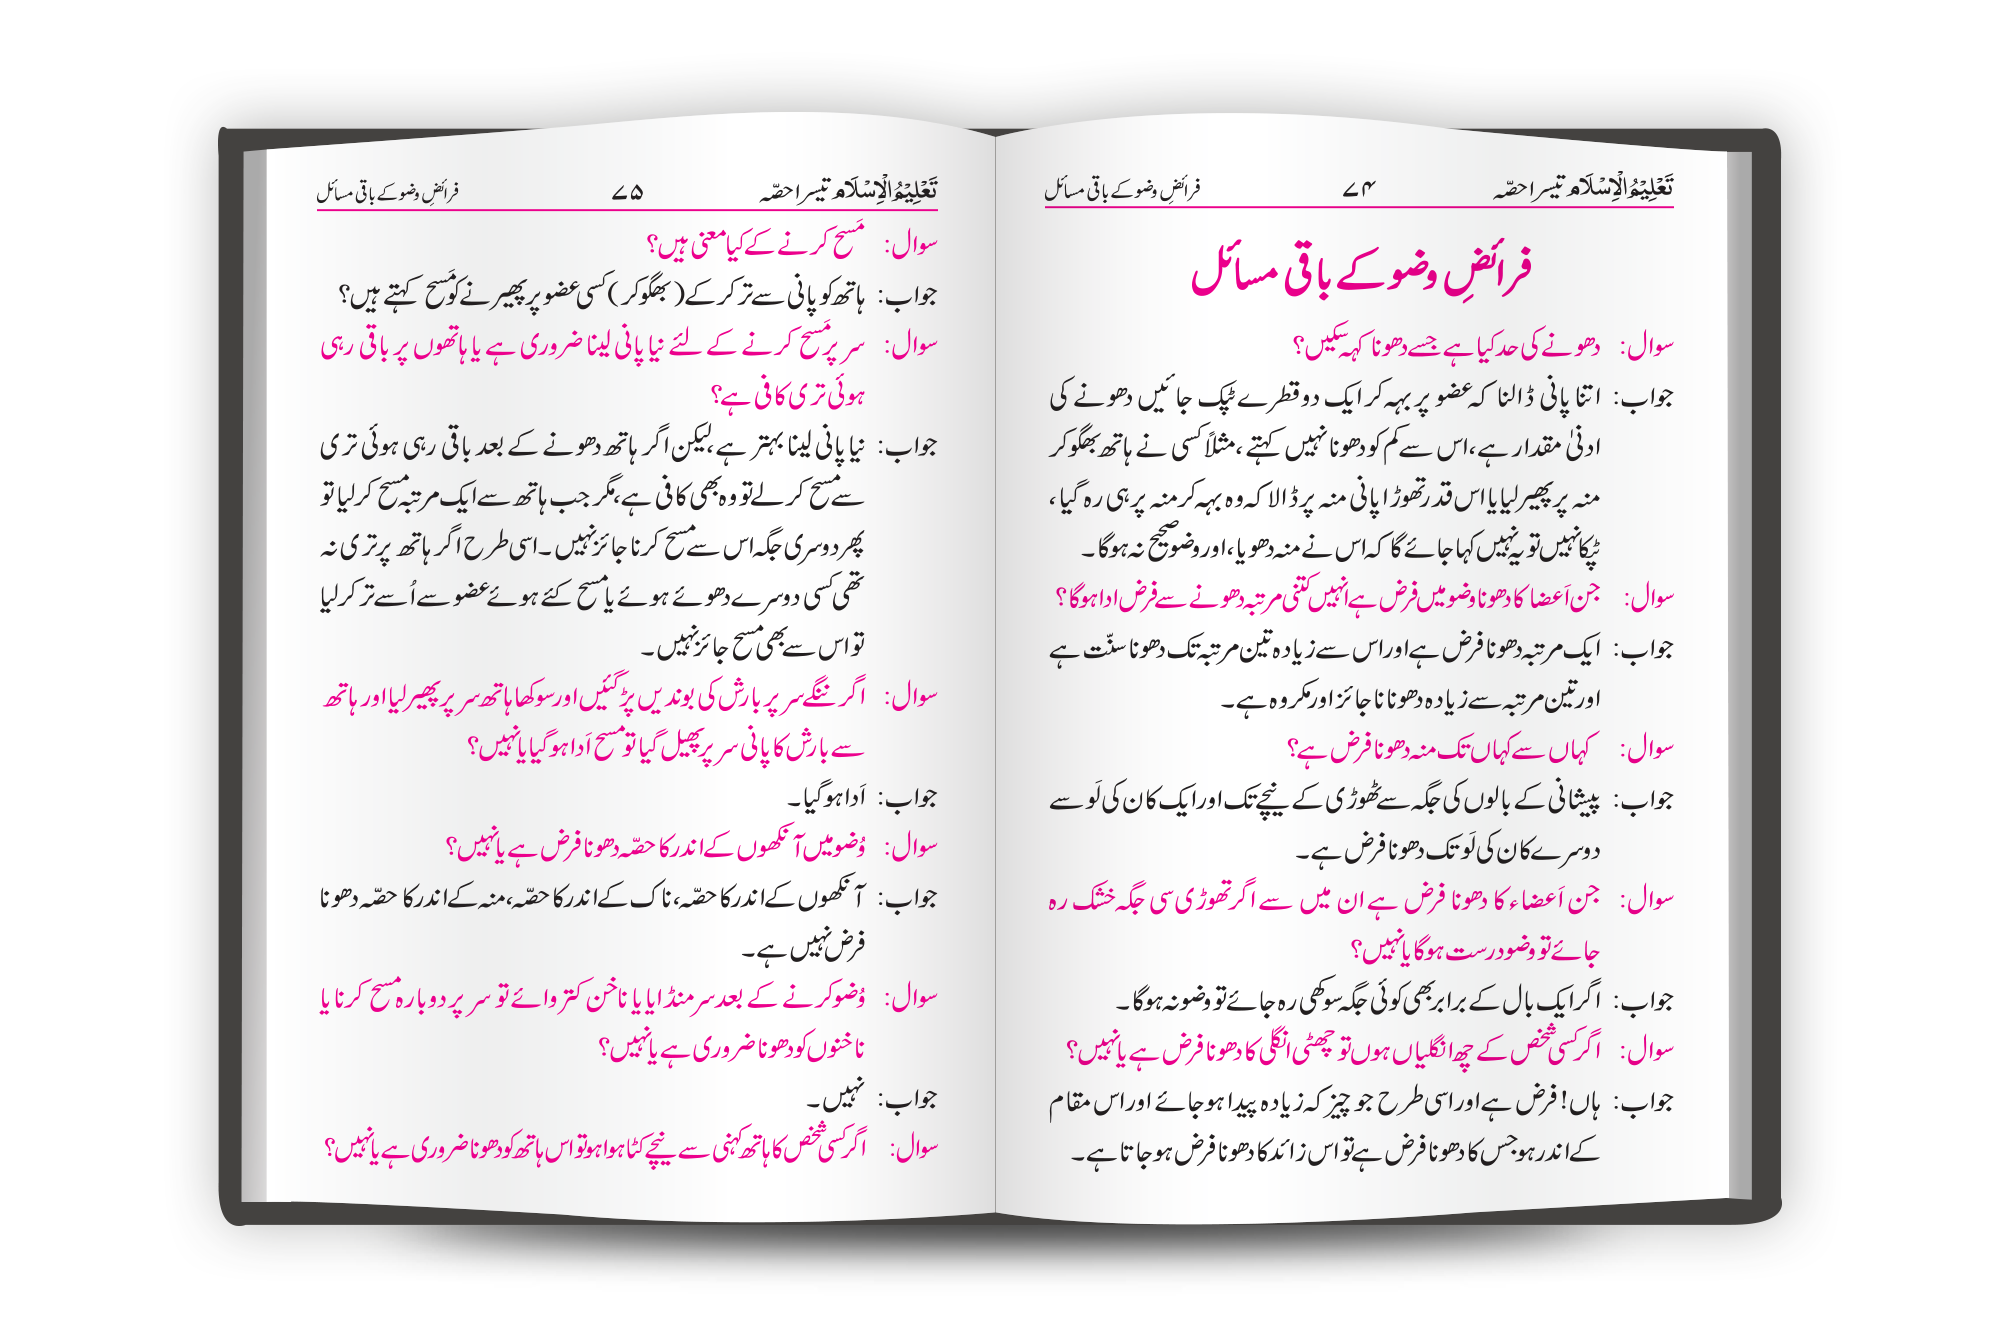 تَعْلِیْمُ الْاِسْلَام تیسرا حصّہ ۷۴ فرائضِ وضو کے باقی مسائل
فرائضِ وضو کے باقی مسائل
سوال: دھونے کی حد کیا ہے جسے دھونا کہہ سکیں؟
جواب: اتنا پانی ڈالنا کہ عضو پر بہہ کر ایک دو قطرے ٹپک جائیں دھونے کی
ادنیٰ مقدار ہے، اس سے کم کو دھونا نہیں کہتے، مثلاً کسی نے ہاتھ بھگو کر
منہ پر پھیر لیا یا اس قدر تھوڑا پانی منہ پر ڈالا کہ وہ بہہ کر منہ پر ہی رہ گیا،
ٹپکا نہیں تو یہ نہیں کہا جائے گا کہ اس نے منہ دھویا، اور وضو صحیح نہ ہوگا۔
سوال: جن اَعضا کا دھونا وضو میں فرض ہے انہیں کتنی مرتبہ دھونے سے فرض ادا ہوگا؟
جواب: ایک مرتبہ دھونا فرض ہے اور اس سے زیادہ تین مرتبہ تک دھونا سنّت ہے
اور تین مرتبہ سے زیادہ دھونا ناجائز اور مکروہ ہے۔
سوال: کہاں سے کہاں تک منہ دھونا فرض ہے؟
جواب: پیشانی کے بالوں کی جگہ سے ٹھوڑی کے نیچے تک اور ایک کان کی لَو سے
دوسرے کان کی لَو تک دھونا فرض ہے۔
سوال: جن اَعضاء کا دھونا فرض ہے ان میں سے اگر تھوڑی سی جگہ خشک رہ
جائے تو وضو درست ہوگا یا نہیں؟
جواب: اگر ایک بال کے برابر بھی کوئی جگہ سوکھی رہ جائے تو وضو نہ ہوگا۔
سوال: اگر کسی شخص کے چھ انگلیاں ہوں تو چھٹی انگلی کا دھونا فرض ہے یا نہیں؟
جواب: ہاں! فرض ہے اور اسی طرح جو چیز کہ زیادہ پیدا ہو جائے اور اس مقام
کے اندر ہو جس کا دھونا فرض ہے تو اس زائد کا دھونا فرض ہو جاتا ہے۔
تَعْلِیْمُ الْاِسْلَام تیسرا حصّہ ۷۵ فرائضِ وضو کے باقی مسائل
سوال: مَسح کرنے کے کیا معنی ہیں؟
جواب: ہاتھ کو پانی سے تر کر کے (بھگو کر) کسی عضو پر پھیرنے کو مَسح کہتے ہیں؟
سوال: سر پر مَسح کرنے کے لئے نیا پانی لینا ضروری ہے یا ہاتھوں پر باقی رہی
ہوئی تری کافی ہے؟
جواب: نیا پانی لینا بہتر ہے، لیکن اگر ہاتھ دھونے کے بعد باقی رہی ہوئی تری
سے مسح کر لے تو وہ بھی کافی ہے، مگر جب ہاتھ سے ایک مرتبہ مسح کر لیا تو
پھر دوسری جگہ اس سے مسح کرنا جائز نہیں۔ اسی طرح اگر ہاتھ پر تری نہ
تھی کسی دوسرے دھوئے ہوئے یا مسح کئے ہوئے عضو سے اُسے تر کر لیا
تو اس سے بھی مسح جائز نہیں۔
سوال: اگر ننگے سر پر بارش کی بوندیں پڑ گئیں اور سوکھا ہاتھ سر پر پھیر لیا اور ہاتھ
سے بارش کا پانی سر پر پھیل گیا تو مسح اَدا ہو گیا یا نہیں؟
جواب: اَدا ہو گیا۔
سوال: وُضو میں آنکھوں کے اندر کا حصّہ دھونا فرض ہے یا نہیں؟
جواب: آنکھوں کے اندر کا حصّہ، ناک کے اندر کا حصّہ، منہ کے اندر کا حصّہ دھونا
فرض نہیں ہے۔
سوال: وُضو کرنے کے بعد سر منڈایا یا ناخن کتروائے تو سر پر دوبارہ مسح کرنا یا
ناخنوں کو دھونا ضروری ہے یا نہیں؟
جواب: نہیں۔
سوال: اگر کسی شخص کا ہاتھ کہنی سے نیچے کٹا ہوا ہو تو اس ہاتھ کو دھونا ضروری ہے یا نہیں؟